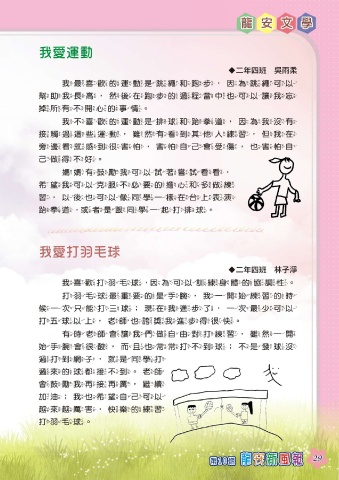 龍安文學
我愛運動
◆二年四班 吳雨柔
我最喜歡的運動是跳繩和跑步，因為跳繩可以
幫助我長高，然後在跑步的過程當中也可以讓我忘
掉所有不開心的事情。
我不喜歡的運動是排球和跆拳道，因為我沒有
接觸過這些運動，雖然有看到其他人練習，但我在
旁邊看就感到很害怕，害怕自己會受傷，也害怕自
己做得不好。
媽媽有鼓勵我可以試著嘗試看看，
希望我可以克服不必要的擔心和多做練
習，以後也可以像同學一樣在台上表演
跆拳道，或者是跟同學一起打排球。
我愛打羽毛球
◆二年四班 林子淨
我喜歡打羽毛球，因為可以訓練身體的協調性。
打羽毛球最重要的是手腕，我一開始練習的時
候一次只能打三球；現在我進步了，一次最少可以
打五球以上，老師也誇獎我進步得很快。
有時老師會讓我們做自由對打練習，雖然一開
始手腕會很酸，而且也常常打不到球；不是發球沒
過打到網子，就是同學打
過來的球都接不到。老師
會鼓勵我再接再厲，繼續
加油；我也希望自己可以
越來越厲害，快樂的練習
打羽毛球。
龍安新風報
29